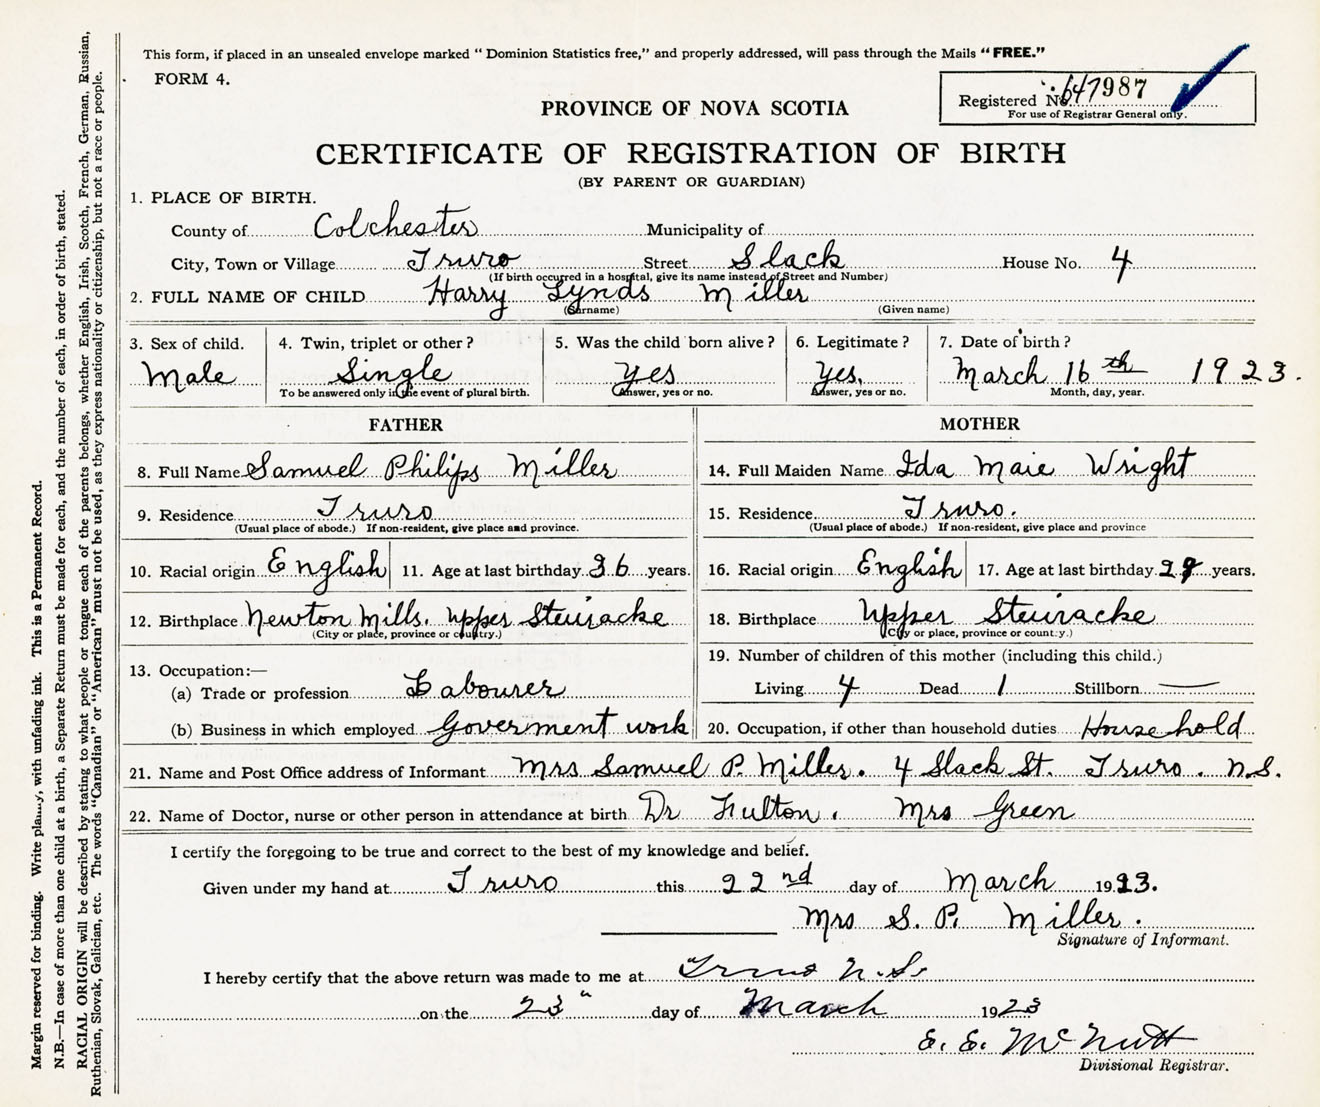 This form, if placed in an unsealed envelope marked "Dominion Statistics free," and properly addressed, will pass through the Mails "FREE."
FORM 4.
Registered No. 647987
For use of Registrar General only.
PROVINCE OF NOVA SCOTIA
CERTIFICATE OF REGISTRATION OF BIRTH
(BY PARENT OR GUARDIAN)
1. PLACE OF BIRTH.
County of Colchester Municipality of
City, Town or Village Truro Street Slack House No. 4
(If birth occurred in a hospital, give its name instead of Street and Number)
2. FULL NAME OF CHILD Harry Lynds Miller
(Surname) (Given name)
3. Sex of child. 4. Twin, triplet or other? 5. Was the child born alive? 6. Legitimate? 7. Date of birth?
Male Single Yes Yes, March 16th 1923.
To be answered only in the event of plural birth. Answer, yes or no. Answer, yes or no. Month, day, year.
FATHER MOTHER
8. Full Name Samuel Philips Miller 14. Full Maiden Name Ida Maie Wright
9. Residence Truro 15. Residence Truro.
(Usual place of abode.) If non-resident, give place and province. (Usual place of abode.) If non-resident, give place and province
10. Racial origin English 11. Age at last birthday 36 years. 16. Racial origin English 17. Age at last birthday years.
12. Birthplace Newton Mills. Upper Stewiacke 18. Birthplace Upper Stewiacke
(City or place, province or country.) (City or place, province or country.)
13. Occupation:— 19. Number of children of this mother (including this child.)
(a) Trade or profession Labourer Living 4 Dead 1 Stillborn —
(b) Business in which employed Goverment work 20. Occupation, if other than household duties Household
21. Name and Post Office address of Informant Mrs Samuel P. Miller. 4 Slack St. Truro. N.S.
22. Name of Doctor, nurse or other person in attendance at birth Dr Fulton. Mrs Green
I certify the foregoing to be true and correct to the best of my knowledge and belief.
Given under my hand at Truro this 22nd day of March 1923.
Mrs S. P. Miller.
Signature of Informant.
I hereby certify that the above return was made to me at Truro N.S.
on the 23" day of March 1923
E. E. McNutt
Divisional Registrar.
Margin reserved for binding. Write plainly, with unfading ink. This is a Permanent Record.
N.B.—In case of more than one child at a birth, a Separate Return must be made for each, and the number of each, in order of birth, stated.
RACIAL ORIGIN will be described by stating to what people or tongue each of the parents belongs, whether English, Irish, Scotch, French, German, Russian,
Ruthenian, Slovak, Galician, etc. The words "Canadian" or "American" must not be used, as they express nationality or citizenship, but not a race or people.